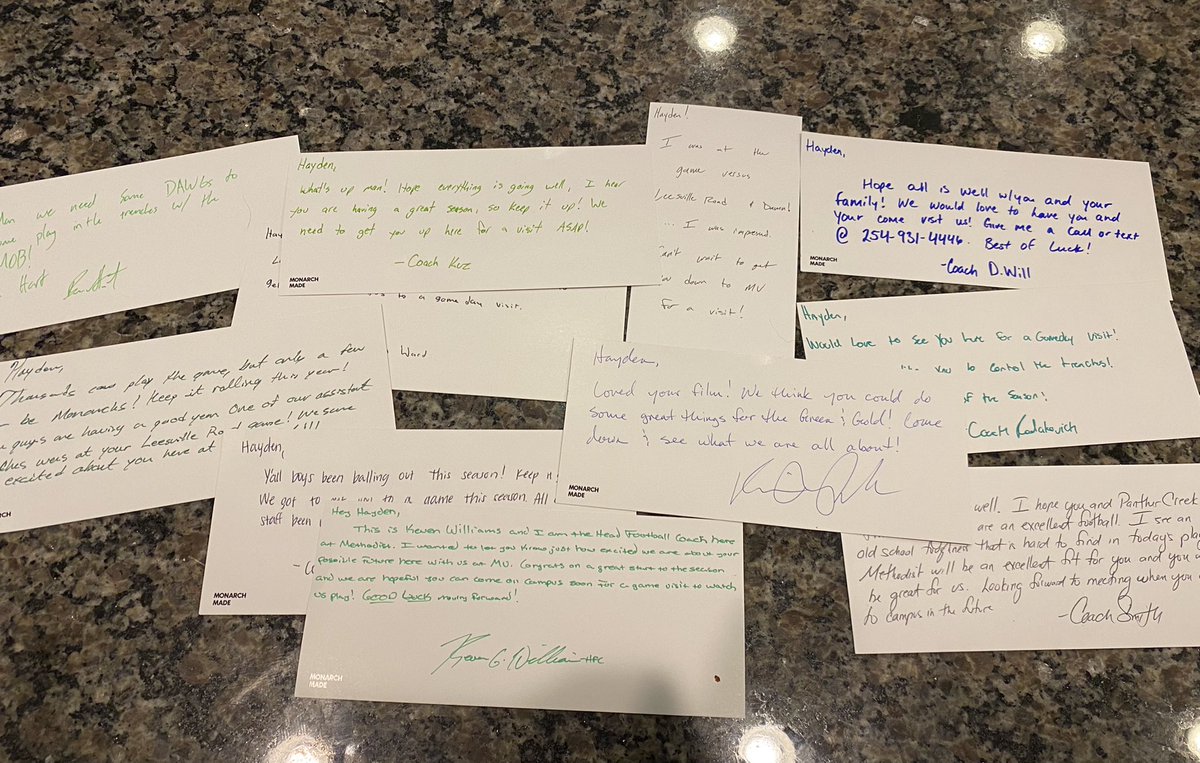 we need some DAWGS to
play in the trenches w/ the
MOB!
Hart
Hayden,
What's up man! Hope everything is going well, I hear
you are having a great season, so keep it up! We
need to get you up here for a visit ASAP!
-Coach Kuz
MONARCH
MADE
to a game day visit.
Ward
Hayden!
I was at the
game versus
Leesville Road & Durant!
... I was impressed.
Can't wait to get
you down to MU
for a visit!
Hayden,
Hope all is well w/you and your
family! We would love to have you and
your come visit us! Give me a call or text
@ 254-931-4446. Best of Luck!
-Coach D. Will
MONARCH
MADE
Hayden,
Would love to see you here for a Gameday visit!
you to control the trenches!
of the season!
Coach Radakovich
Hayden,
Thousands can play the game, but only a few
be Monarchs! Keep it rolling this year!
guys are having a good year. One of our assistant
was at your Leesville Road game! We sure
excited about you here at
Hayden,
Loved your film! We think you could do
some great things for the Green & Gold! Come
down & see what we are all about!
MONARCH
MADE
Hayden,
Yall guys been balling out this season! Keep it
We got to get you to a game this season All
staff been
MONARCH
MADE
Hey Hayden,
This is Keven Williams and I am the Head Football Coach here
at Methodist. I wanted to let you know just how excited we are about your
possible future here with us at MU. Congrats on a great start to the season
and we are hopeful you can come on campus soon for a game visit to watch
us play! GOOD Luck moving forward!
Keven G. Williams HFC
MONARCH
MADE
well. I hope you and Panther Creek
are an excellent football. I see an
old school toughness that is hard to find in todays
Methodist will be an excellent fit for you and you
be great for us. Looking forward to meeting when you
to campus in the future
-Coach Smith